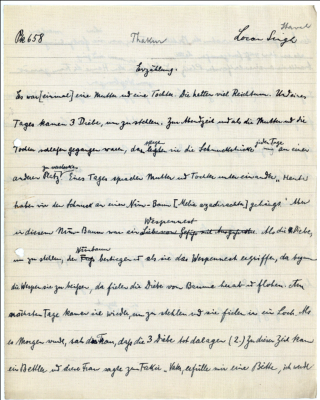 Pk 658
Thakur
Havel
Loran Singh
Erzählung.
Es war [einmal] eine Mutter u d eine Tochter. Die hatten viel Reichtum. Und eines
Tages kamen 3 Diebe, um zu stehlen. Zur Abendzeit u d als die Mutter u d die
Tochter schlafen gegangen waren, da legte sie die Schmuckstücke jeden Tag an einen
anderen Platz. Eines Tages sprachen Mutter u d Tochter unter einander, "Heute
haben wir den Schmuck an einen Nim-Baum [Melia azadirachta] gehängt". Aber
Wespennest
in diesem Nim-Baum war ein
Als die 3 Diebe,
um zu stehlen, den Nimbaum bestiegen u d als sie das Wespennest ergriffen, da begannen
die Wespen sie zu beißen, da fielen die Diebe vom Baume herab u d flohen. Am
nächsten Tage kamen sie wieder, um zu stehlen u d sie fielen in ein Loch. Als
es Morgen wurde, sah die Frau, dass die 3 Diebe tot dalagen (2.) Zu dieser Zeit kam
ein Bettler u d diese Frau sagte zum Fakir: "Vater, erfülle mir eine Bitte, ich werde